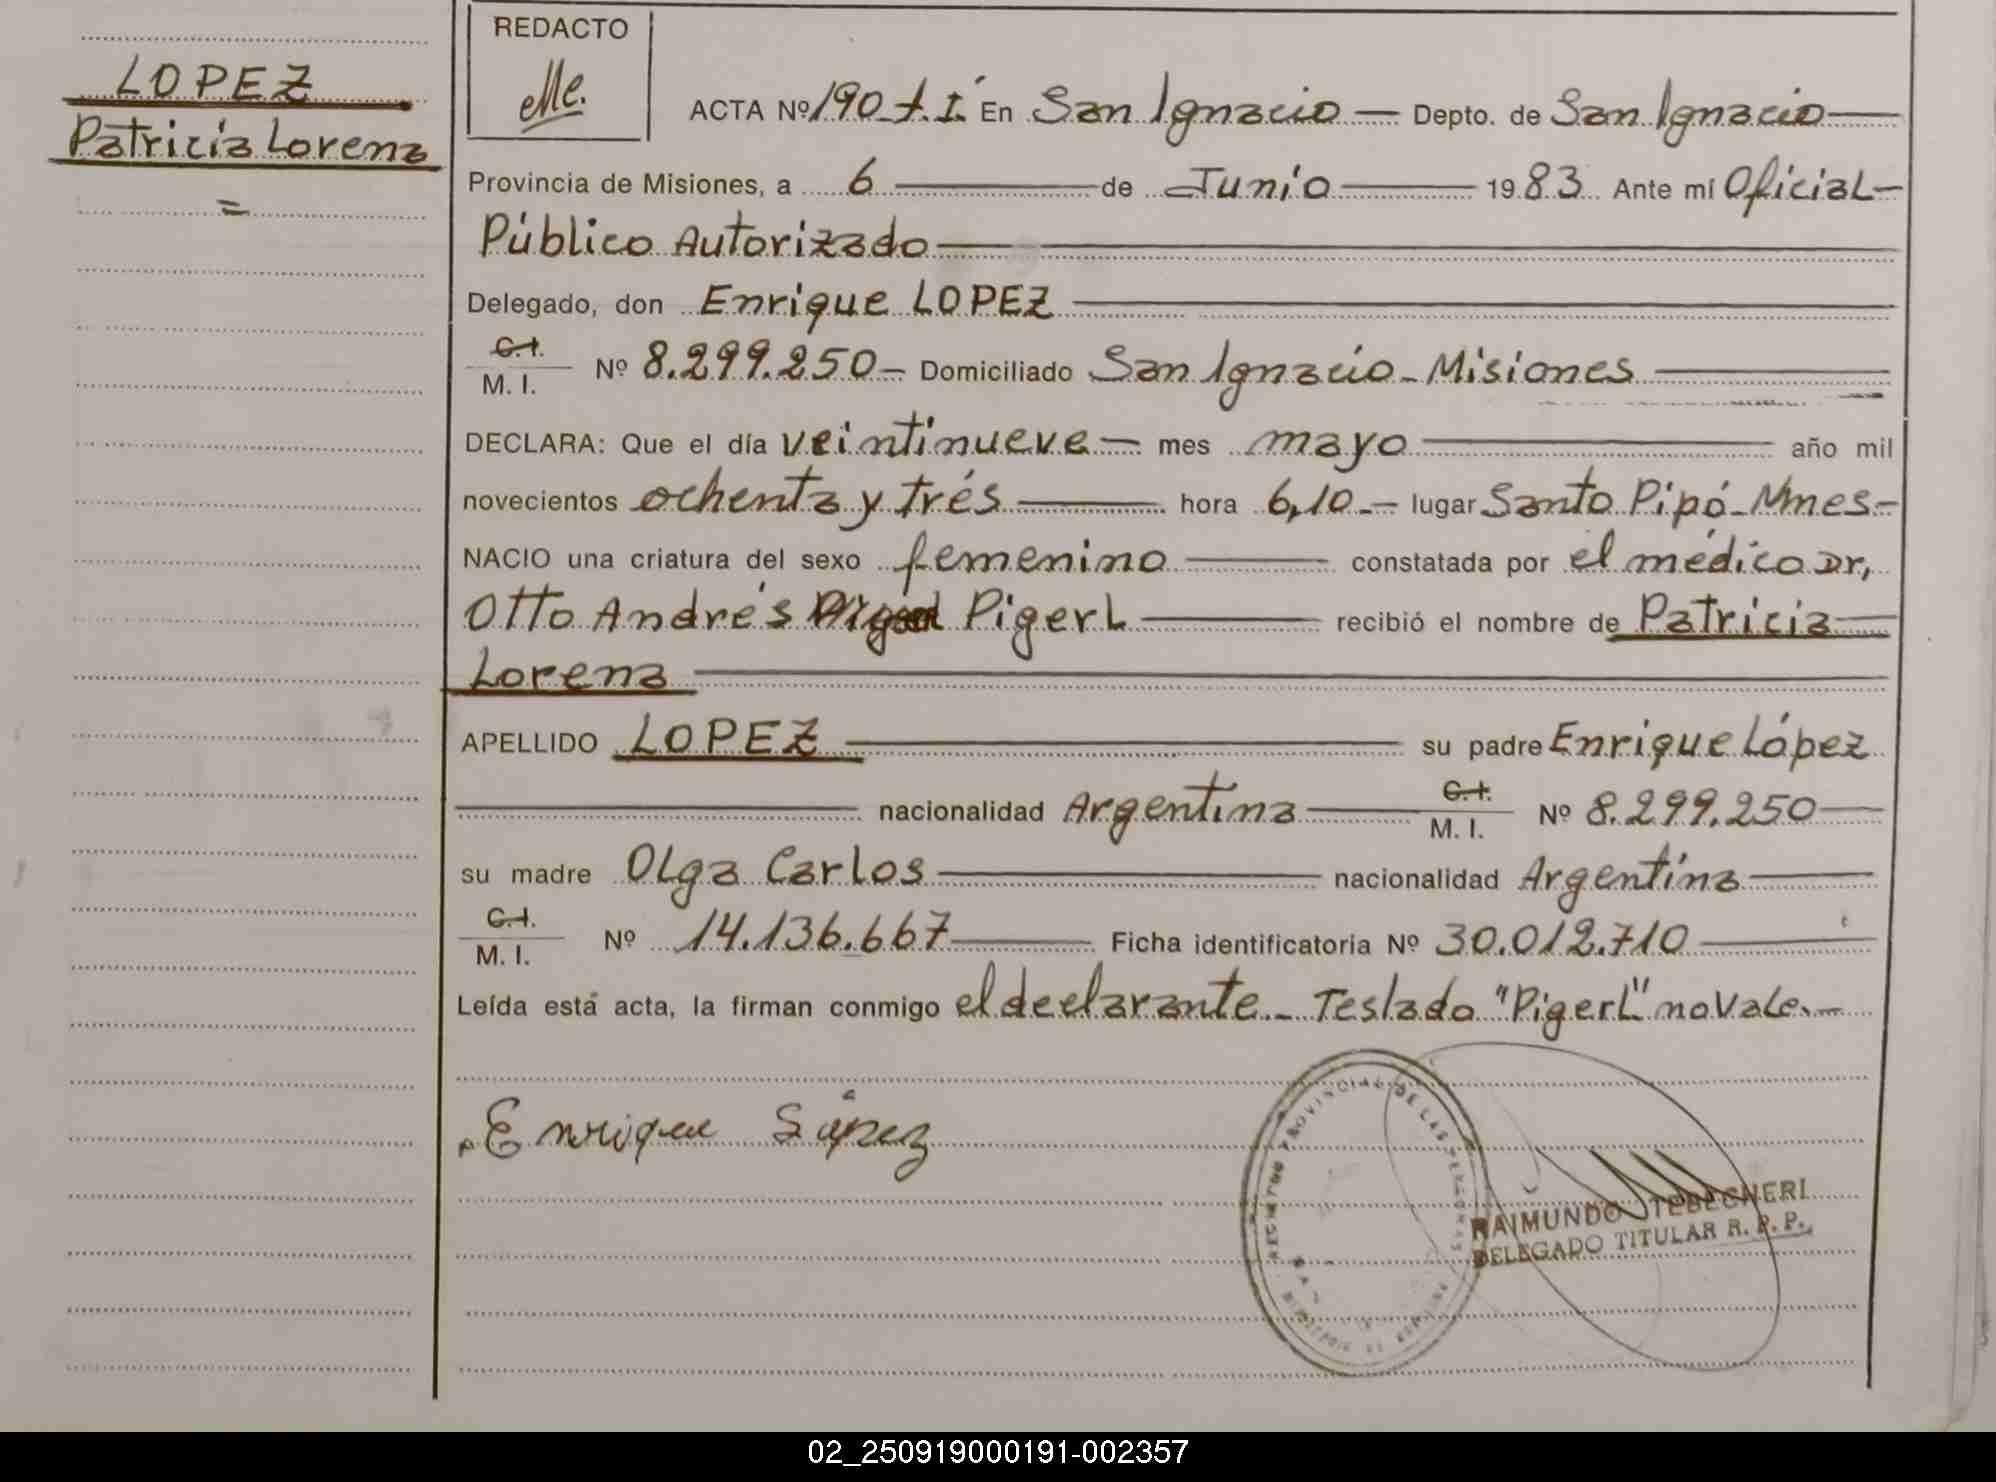 LOPEZ
Patricia Lorena
=
REDACTO
ACTA Nº 190 t. I En San Ignacio — Depto. de San Ignacio —
Provincia de Misiones, a 6 — de Junio — 1983 Ante mí Oficial —
Público Autorizado —
Delegado, don Enrique LOPEZ —
C. I.
M. I. Nº 8.299.250 — Domiciliado San Ignacio - Misiones —
DECLARA: Que el día veintinueve — mes mayo — año mil
novecientos ochenta y trés — hora 6,10 — lugar Santo Pipó - Mnes -
NACIO una criatura del sexo femenino — constatada por el médico Dr,
Otto Andrés Pigerl — recibió el nombre de Patricia
Lorena —
APELLIDO LOPEZ — su padre Enrique López
— nacionalidad Argentina — C. I.
M. I. Nº 8.299.250 —
su madre Olga Carlos — nacionalidad Argentina —
C. I.
M. I. Nº 14.136.667 — Ficha identificatoria Nº 30.012.710 —
Leída está acta, la firman conmigo el declarante. - Teslado "Pigerl" no vale. -
Enrique López
PROVINCIAL DE LAS PERSONAS
RAIMUNDO TEBECHERI
DELEGADO TITULAR R. P. P.
02_250919000191-002357